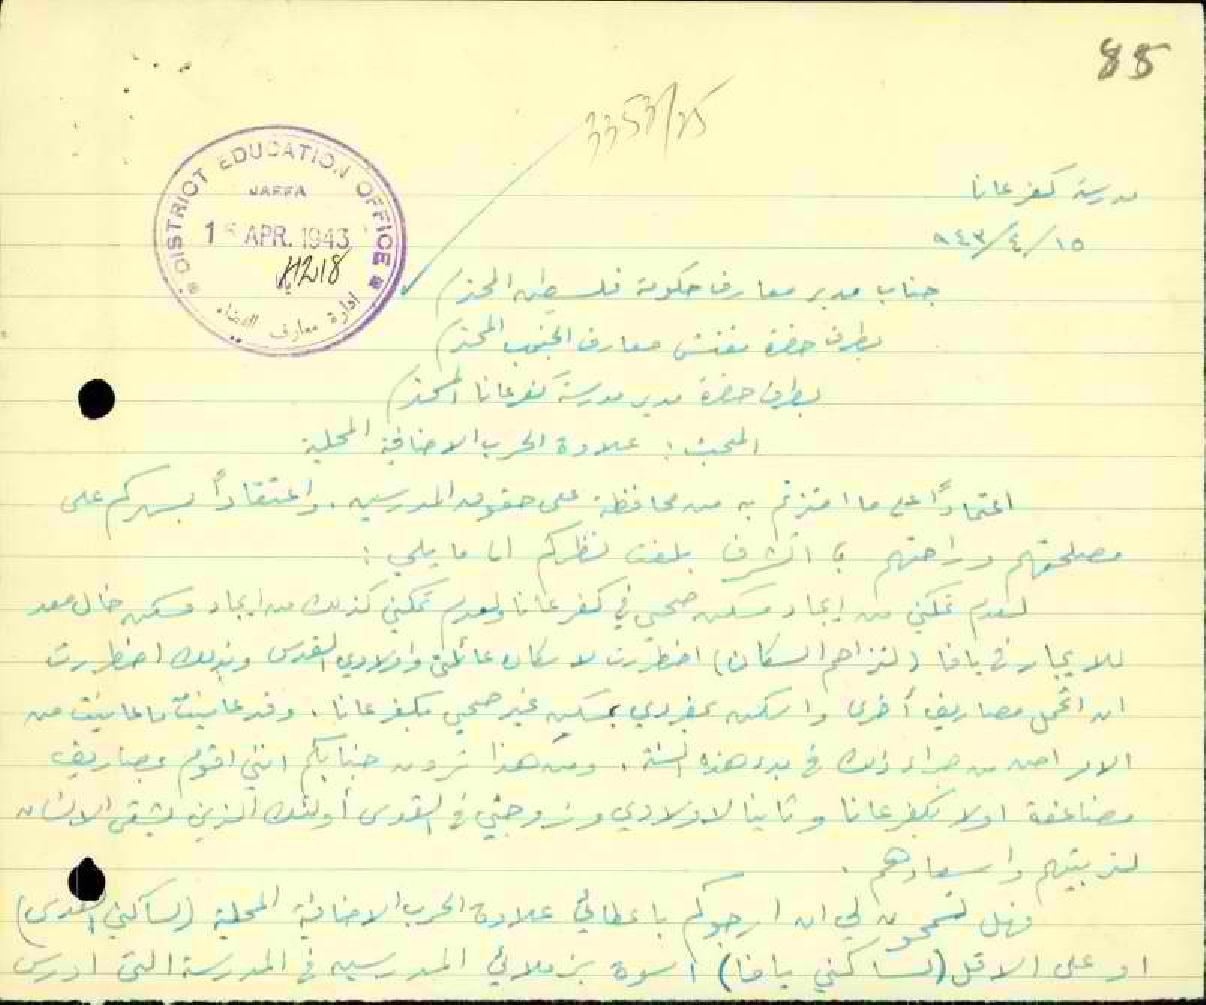 85
3353/25
DISTRICT EDUCATION OFFICE
JAFFA
15 APR. 1943
4218
ادارة معارف اللواء
مدرسة كفرعانا
١٥/٤/٩٤٣
جناب مدير معارف حكومة فلسطين المحترم
بطرف حضرة مفتش معارف الجنوب المحترم
بطرف حضرة مدير مدرسة كفرعانا المحترم
المبحث : علاوة الحرب الاضافية المحلية
اعتماداً على ما امتزتم به من محافظة على حقوق المدرسين . واعتقاداً بسهركم على
مصلحتهم وراحتهم اتشرف بلفت نظركم الى ما يلي :
لعدم تمكني من ايجاد مسكن صحي في كفرعانا ولعدم تمكني كذلك من ايجاد مسكن خال معد
للايجار في يافا (لتزاحم السكان) اضطررت لاسكان عائلتي واولادي القدس وبذلك اضطررت
ان اتحمل مصاريف أخرى واسكن بمفردي بمسكن غير صحي بكفرعانا . وقد عانيت ما عانيت من
الامراض من جراء ذلك في بدء هذه السنة . ومن هذا ترون جنابكم انني اقوم بمصاريف
مضاعفة اولا بكفرعانا وثانيا لاولادي وزوجتي في القدس أولئك الذين يشقى الانسان
لتربيتهم واسعادهم .
فهل تسمحون لي ان ارجوكم باعطائي علاوة الحرب الاضافية المحلية (لساكني القدس)
او على الاقل (لساكني يافا) اسوة بزملائي المدرسين في المدرسة التي ادرس